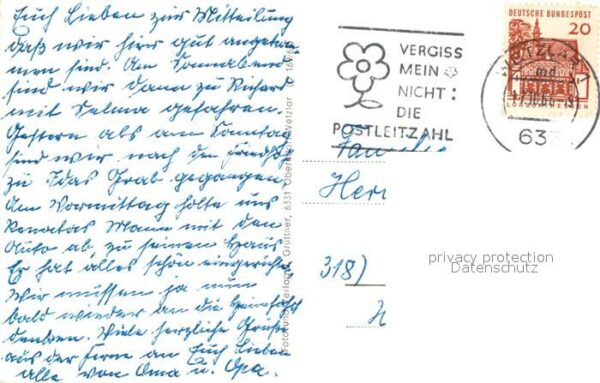 Euch Lieben zur Mitteilung
daß wir hier gut angekom-
men sind. Am Sonnabend
sind wir dann zu Richard
mit Selma gefahren.
Gestern als am Sonntag
sind wir nach dem Friedhof
zu Idas Grab gegangen.
Am Vormittag holte uns
Renatas Mann mit den
Auto ab, zu seinem Haus
Er hat alles schön eingerichtet
Wir müssen ja nun
bald wieder an die Heimfahrt
denken. Viele herzliche Grüße
aus der Ferne an Euch Lieben
alle von Oma u. Opa.
Gruttner, 6331
VERGISS
MEIN
NICHT:
DIE
POSTLEITZAHL
DEUTSCHE BUNDESPOST
20
WETZLAR
md
633
Fam
Herr
318)
privacy protection
Datenschutz